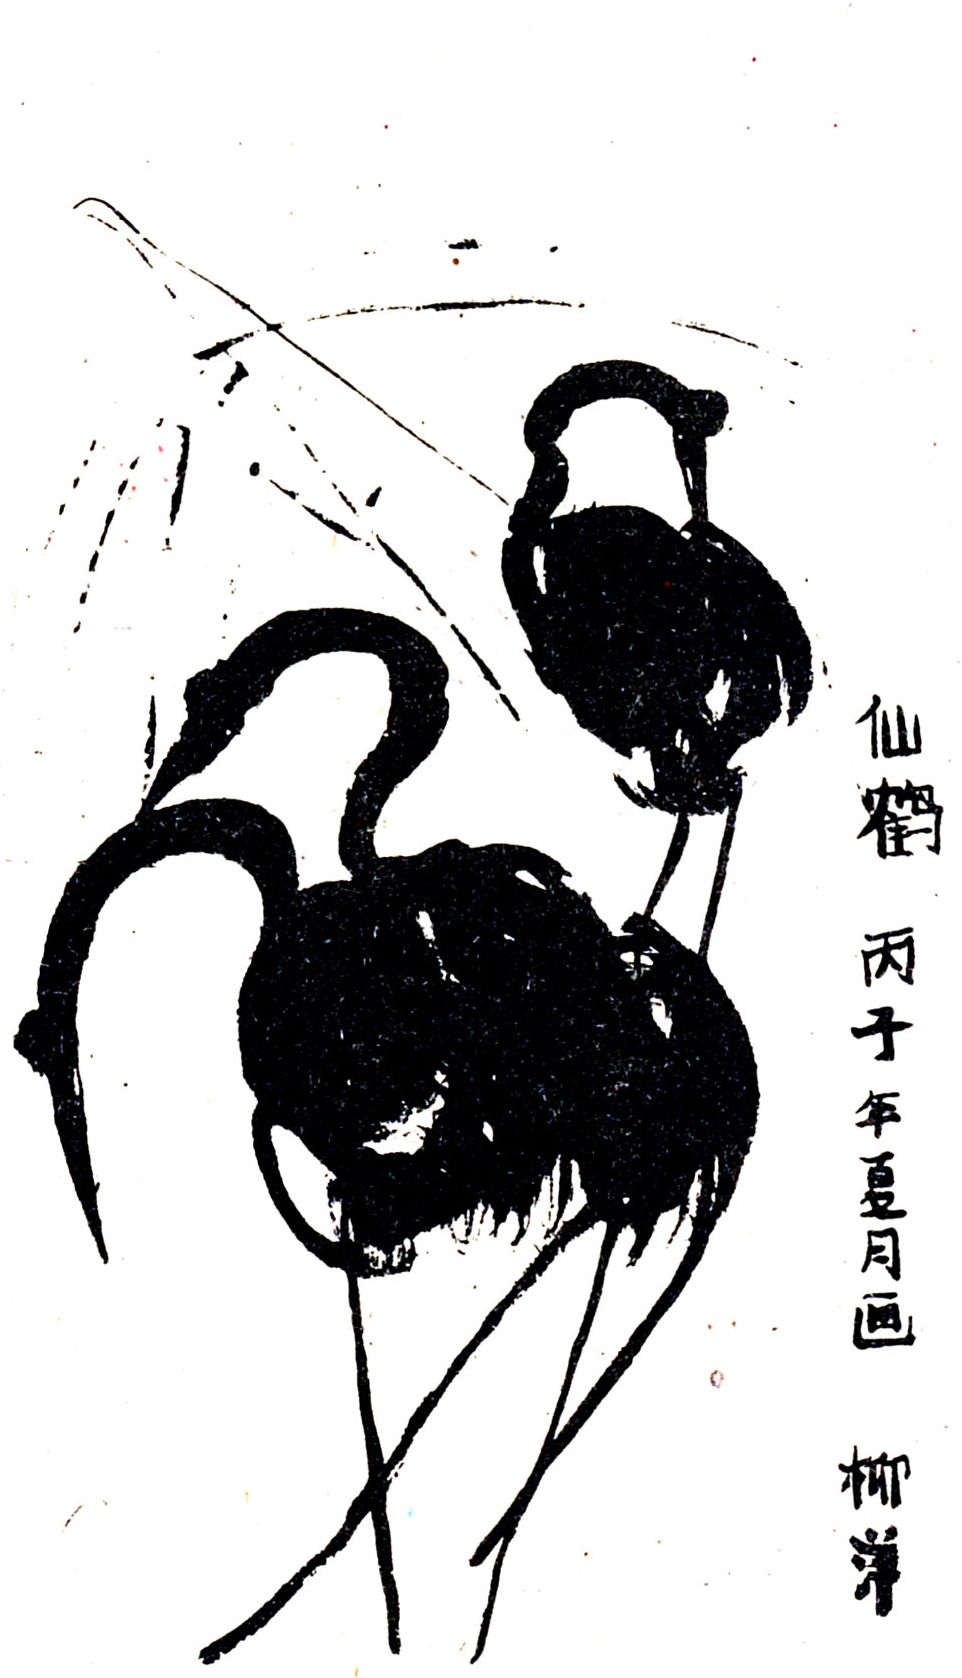 仙鹤 丙子年夏月画 柳萍